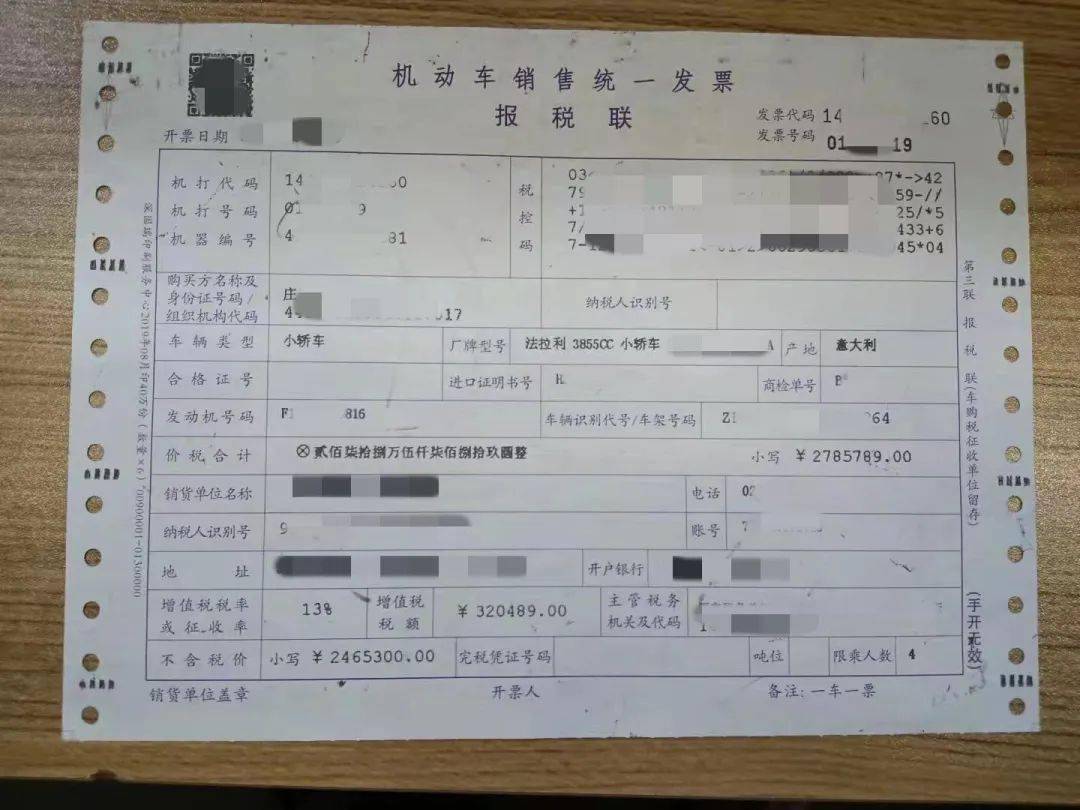 机动车销售统一发票
报税联
开票日期
发票代码 14 60
发票号码 01 19
机打代码 14 0
机打号码 01 9
机器编号 4 81
税控码
03 07*->42
79 59-//
+1 25/*5
7/ 433+6
7-1 45*04
购买方名称及身份证号码/组织机构代码 庄 4 017
纳税人识别号
车辆类型 小轿车 厂牌型号 法拉利 3855CC 小轿车 A 产地 意大利
合格证号 进口证明书号 商检单号
发动机号码 F 816 车辆识别代号/车架号码 Z 64
价税合计 ⊗贰佰柒拾捌万伍仟柒佰捌拾玖圆整 小写 ¥2785789.00
销货单位名称 电话 02
纳税人识别号 9 账号 7
地址 开户银行
增值税税率或征收率 13% 增值税税额 ¥320489.00 主管税务机关及代码 1
不含税价 小写 ¥2465300.00 完税凭证号码 吨位 限乘人数 4
销货单位盖章 开票人 备注:一车一票
第三联 报税联(车购税征收单位留存)
(手开无效)
印刷服务中心2019年08月印40万份(数量×6)*00900001-01300000